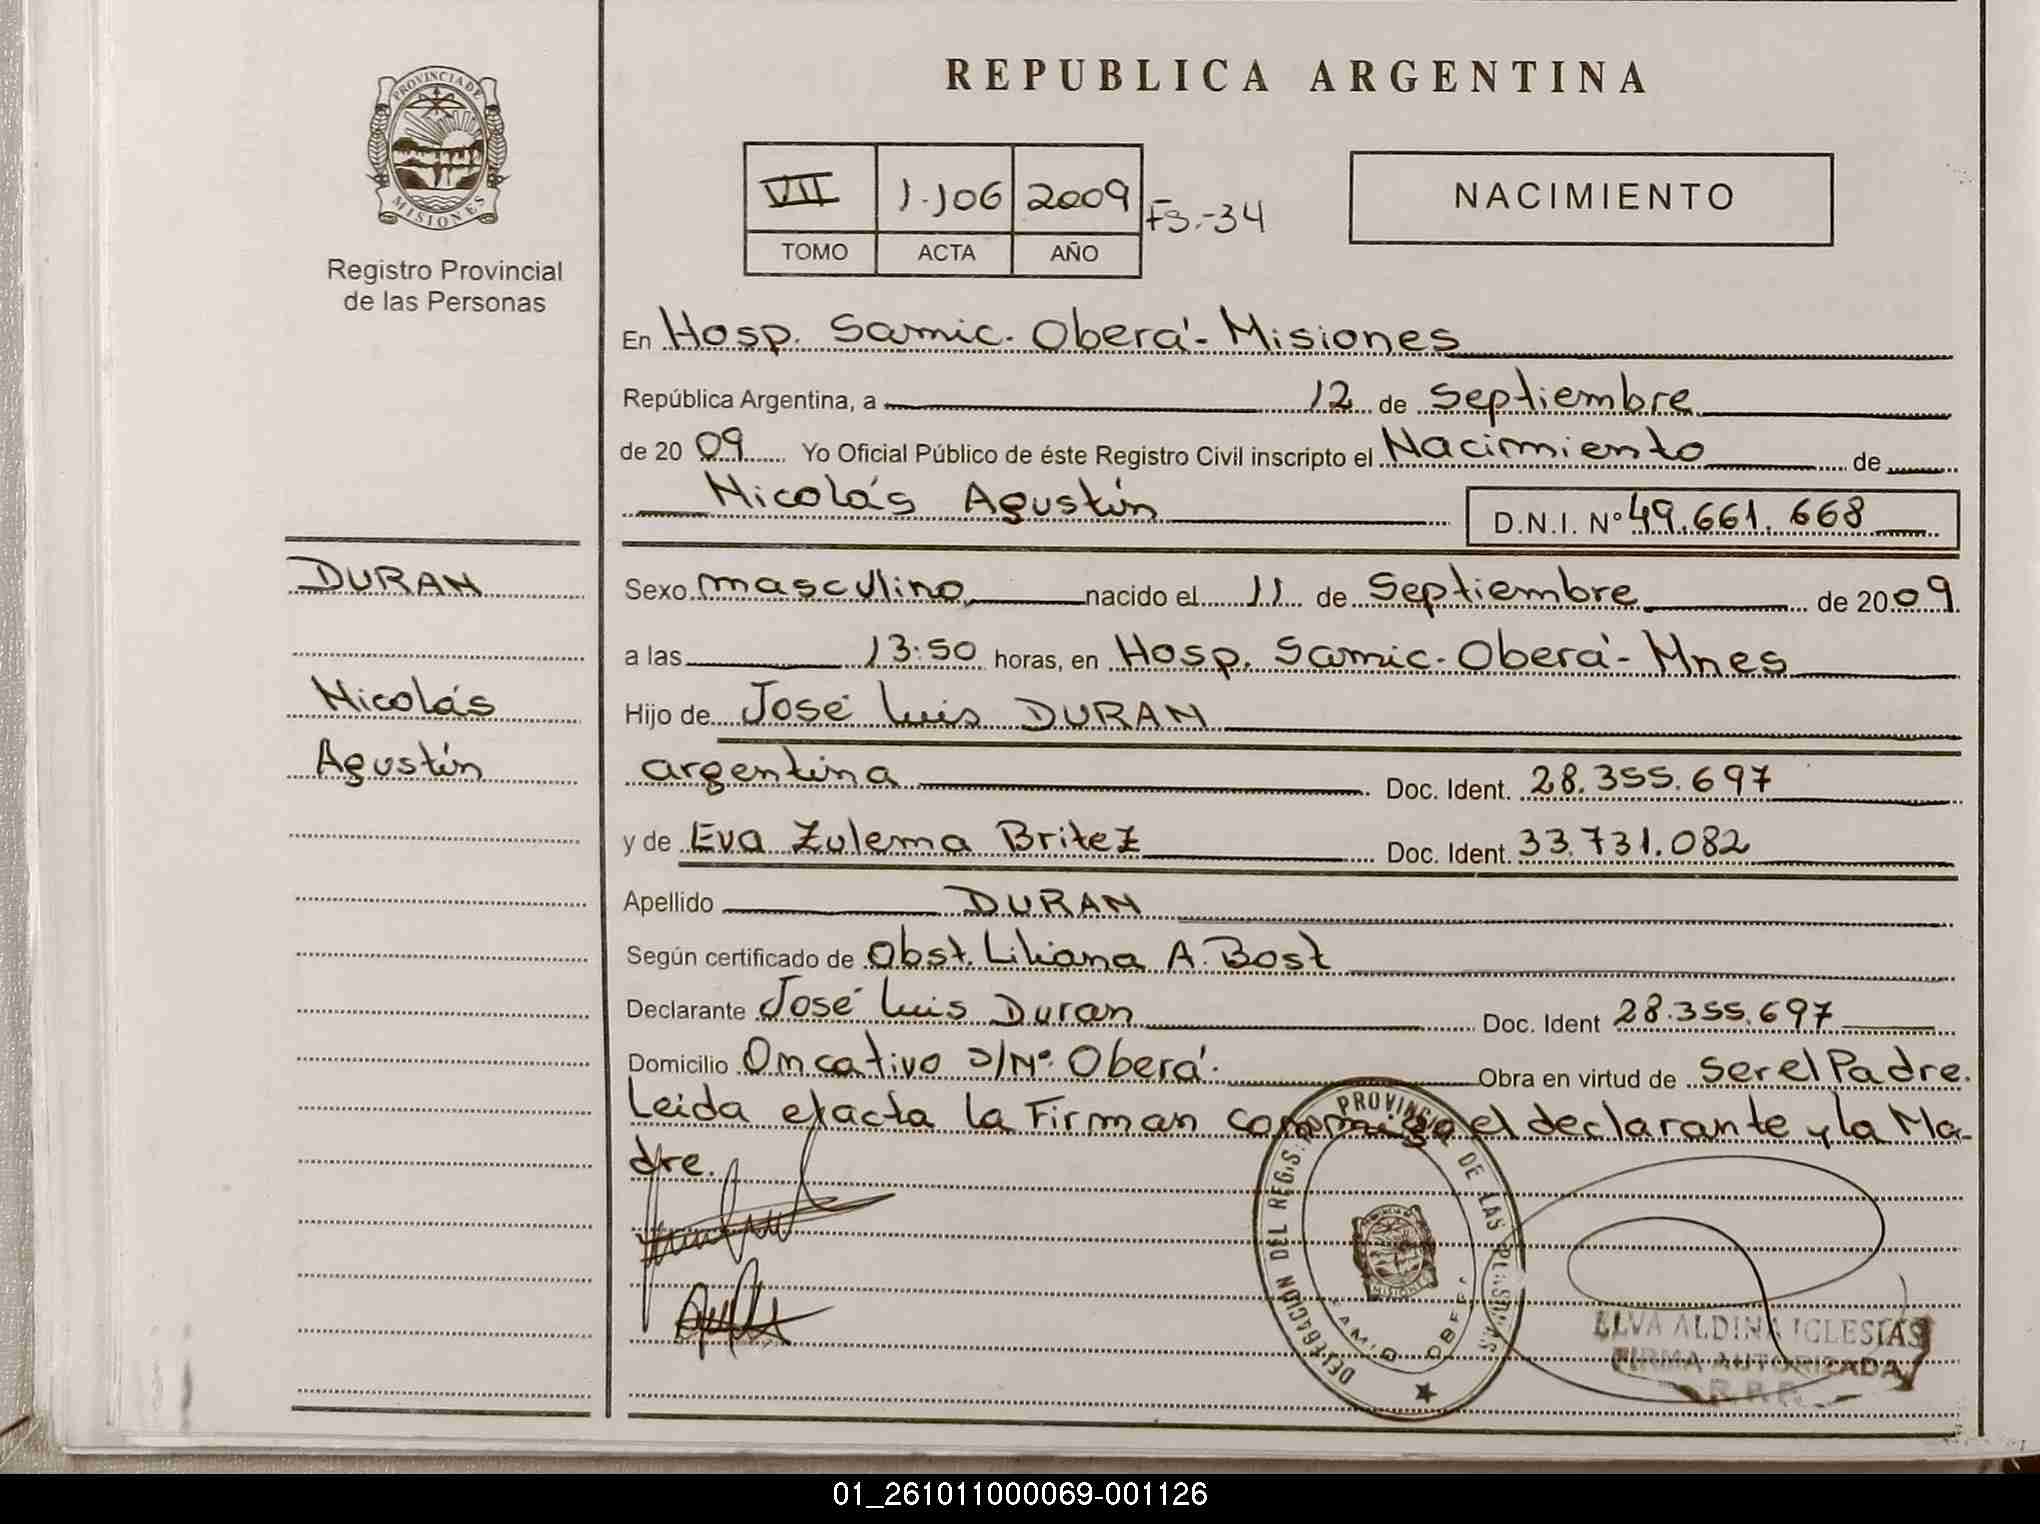 PROVINCIA DE
MISIONES
Registro Provincial
de las Personas
REPUBLICA ARGENTINA
VII 1.106 2009 Fs.-34
TOMO ACTA AÑO
NACIMIENTO
En Hosp. Samic. Oberá - Misiones
República Argentina, a 12 de Septiembre
de 20 09 Yo Oficial Público de éste Registro Civil inscripto el Nacimiento de
Nicolás Agustín D.N.I. Nº 49.661.668
DURAN
Nicolás
Agustín
Sexo masculino nacido el 11 de Septiembre de 20 09
a las 13:50 horas, en Hosp. Samic. Oberá - Mnes
Hijo de José Luis DURAN
argentina Doc. Ident. 28.355.697
y de Eva Zulema Britez Doc. Ident. 33.731.082
Apellido DURAN
Según certificado de Obst. Liliana A. Bost
Declarante José Luis Duran Doc. Ident 28.355.697
Domicilio Oncativo S/Nº Oberá. Obra en virtud de ser el Padre.
Leida exacta la Firman conmigo el declarante y la Ma-
dre.
DELEGACION DEL REGIS. PROVINCIAL DE LAS PERSONAS
MISIONES
ELVA ALDINA IGLESIAS
FIRMA AUTORIZADA
R.P.P.
01_261011000069-001126